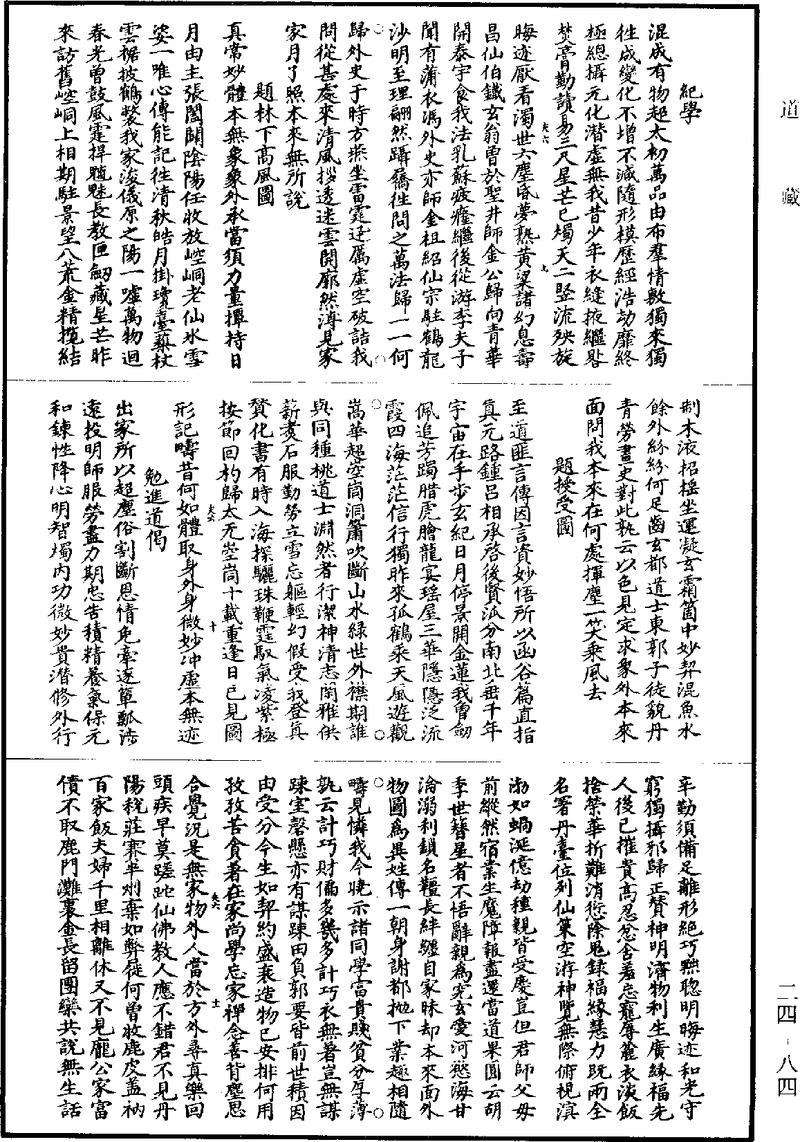 道藏
紀學
混成有物超太初萬品由布羣情敷獨來獨
徃成變化不增不減隨形模歷經浩劫靡終
極總攝元化潜虛無我昔少年衣縫掖繼晷
焚膏勤讀易三尺星芒已燭天二竪流殃旋
晦迹厭看濁世六塵昏夢熟黃粱諸幻息壽
昌仙伯鐵玄翁曾於聖井師金公歸向青華
開泰宇食我法乳蘇疲癃繼後從游李夫子
聞有蒲衣馮外史亦師金祖紹仙宗駐鶴龍
沙明至理翩然躡屩徃問之萬法歸一一何
歸外史于時方燕坐雷霆迅厲虛空破詰我
問從甚處來清風拶透迷雲開廓然溥見家
家月了照本來無所說
題林下高風圖
真常妙體本無象象外承當須力量撣持日
月由主張闔闢陰陽任收放崆峒老仙冰雪
姿一唯心傳能記徃清秋皓月掛瓊臺藜杖
雲裾披鶴氅我家浚儀原之陽一噓萬物迴
春光曾鼓風霆捍魑魅長教匣劒藏星芒昨
來訪舊崆峒上相期駐景望八荒金精攬結
制本液招摇坐運凝玄霜箇中妙契混魚水
餘外紛紛何足齒玄都道士東郭子徒貌丹
青勞畫史對此孰云以色見定求象外本來
面問我本來在何處揮麈一笑乘風去
題授受圖
至道匪言傳因言資妙悟所以函谷篇直指
真元路鍾呂相承啓後賢派分南北垂千年
宇宙在手步玄紀日月停景開金蓮我曾劒
佩追芳躅腊虎膾龍宴瑶屋三華隱隱泛流
霞四海茫茫信行獨昨來孤鶴乘天風遊觀
嵩華超崆峒洞簫吹斷山水緑世外襟期誰
與同種桃道士淵然者行潔神清志閑雅供
薪煑石服勤勞立雪忘軀輕幻假受我登真
贊化書有時入海探驪珠鞭霆馭氣凌紫極
按節回杓歸太无崆峒十載重逢日已見圖
形記疇昔何如體取身外身微妙冲虛本無迹
勉進道偈
出家所以超塵俗割斷恩情免牽逐簞瓢涉
遠投明師服勞盡力期忠告積精養氣保元
和鍊性降心明智燭内功微妙貴潜修外行
辛勤須備足離形絶巧黜聦明晦迹和光守
窮獨攝邪歸正賛神明濟物利生廣緣福先
人後己摧貴高忍忿含羞忘寵辱麄衣淡飯
捨榮華折難消愆除鬼録福緣慧力既兩全
名署丹臺位列仙策空游神覽無際俯視溟
渤如蝸涎億劫種親皆受慶豈但君師父母
前縱然宿業生魔障報盡還當道果圓云胡
季世簮星者不悟辭親為究玄愛河慾海甘
淪溺利鎖名韁長絆纏自家昧却本來面外
物圖為異姓傳一朝身謝都抛下業趣相隨
疇見憐我今曉示諸同學富貴賤貧分厚薄
孰云計巧財偏多幾多計巧衣無著豈無謀
踈室罄懸亦有謀踈田負郭要皆前世積因
由受分今生如契約盛衰造物已安排何用
孜孜苦貪著在家尚學忘家禪念善背塵思
合覺况是無家物外人當於方外尋真樂回
頭疾早莫蹉跎仙佛教人應不錯君不見丹
陽税莊寨半州棄如弊蓰何曾收鹿皮蓋衲
百家飯夫婦千里相離休又不見龎公家富
債不取鹿門灘裏金長留團欒共說無生話
夾六
九
夾六
十
夾六
十一
二四-八四